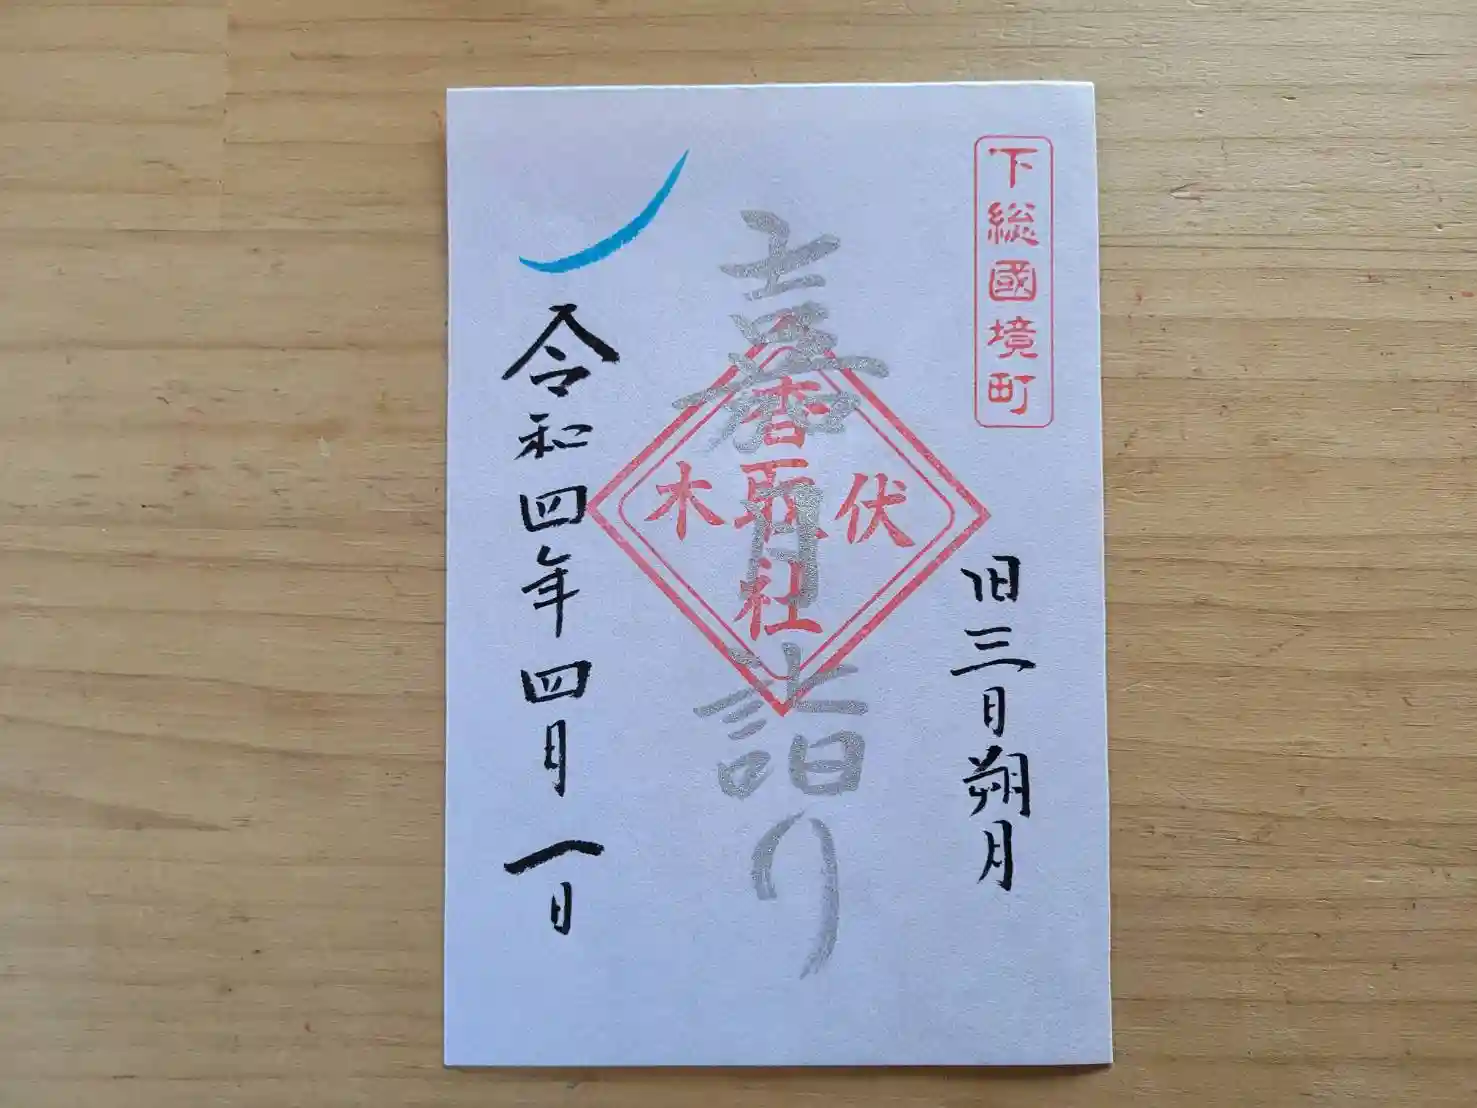 下総國境町
旧三日朔月
喜月詣り
伏木
香取社
令和四年四月一日